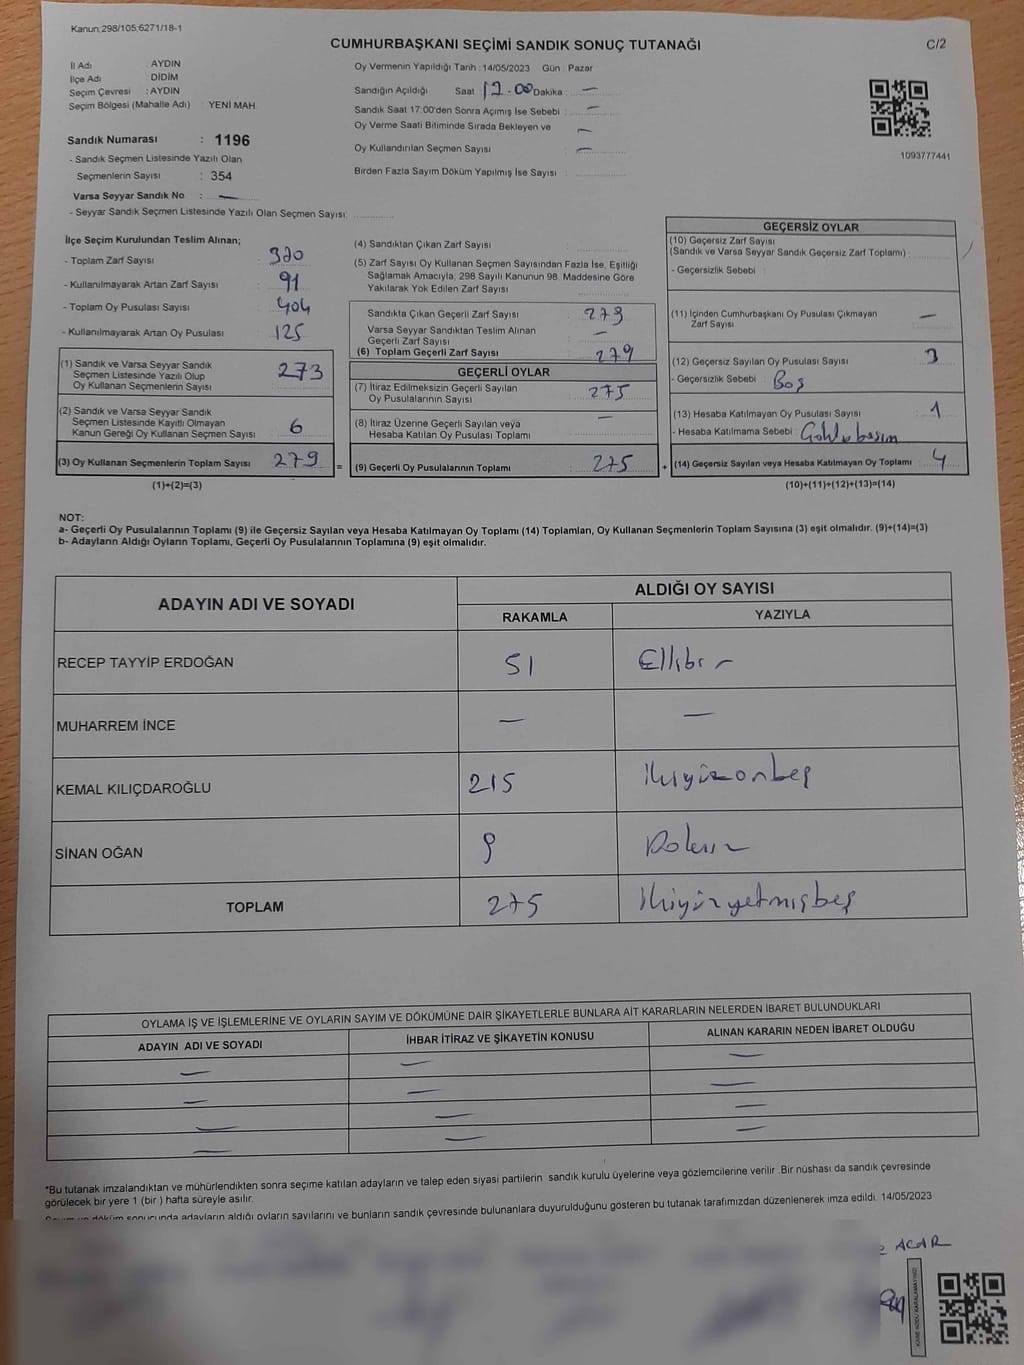 Kanun;298/105;6271/18-1
CUMHURBAŞKANI SEÇİMİ SANDIK SONUÇ TUTANAĞI
C/2
İl Adı : AYDIN
İlçe Adı : DİDİM
Seçim Çevresi : AYDIN
Seçim Bölgesi (Mahalle Adı) : YENİ MAH.
Sandık Numarası : 1196
- Sandık Seçmen Listesinde Yazılı Olan
Seçmenlerin Sayısı : 354
Varsa Seyyar Sandık No : —
- Seyyar Sandık Seçmen Listesinde Yazılı Olan Seçmen Sayısı:
Oy Vermenin Yapıldığı Tarih :14/05/2023 Gün : Pazar
Sandığın Açıldığı Saat 17.00 Dakika : —
Sandık Saat 17:00'den Sonra Açımış İse Sebebi : —
Oy Verme Saati Bitiminde Sırada Bekleyen ve —
Oy Kullandırılan Seçmen Sayısı : —
Birden Fazla Sayım Döküm Yapılmış İse Sayısı :
1093777441
İlçe Seçim Kurulundan Teslim Alınan;
- Toplam Zarf Sayısı : 370
- Kullanılmayarak Artan Zarf Sayısı : 91
- Toplam Oy Pusulası Sayısı : 404
- Kullanılmayarak Artan Oy Pusulası : 125
(1) Sandık ve Varsa Seyyar Sandık
Seçmen Listesinde Yazılı Olup
Oy Kullanan Seçmenlerin Sayısı : 273
(2) Sandık ve Varsa Seyyar Sandık
Seçmen Listesinde Kayıtlı Olmayan
Kanun Gereği Oy Kullanan Seçmen Sayısı : 6
(3) Oy Kullanan Seçmenlerin Toplam Sayısı : 279
(1)+(2)=(3)
(4) Sandıktan Çıkan Zarf Sayısı :
(5) Zarf Sayısı Oy Kullanan Seçmen Sayısından Fazla İse, Eşitliği
Sağlamak Amacıyla, 298 Sayılı Kanunun 98. Maddesine Göre
Yakılarak Yok Edilen Zarf Sayısı
Sandıkta Çıkan Geçerli Zarf Sayısı : 279
Varsa Seyyar Sandıktan Teslim Alınan
Geçerli Zarf Sayısı : —
(6) Toplam Geçerli Zarf Sayısı : 279
GEÇERLİ OYLAR
(7) İtiraz Edilmeksizin Geçerli Sayılan
Oy Pusulalarının Sayısı : 275
(8) İtiraz Üzerine Geçerli Sayılan veya
Hesaba Katılan Oy Pusulası Toplamı : —
= (9) Geçerli Oy Pusulalarının Toplamı : 275
GEÇERSİZ OYLAR
(10) Geçersiz Zarf Sayısı
(Sandık ve Varsa Seyyar Sandık Geçersiz Zarf Toplamı) :
- Geçersizlik Sebebi :
(11) İçinden Cumhurbaşkanı Oy Pusulası Çıkmayan
Zarf Sayısı : —
(12) Geçersiz Sayılan Oy Pusulası Sayısı : 3
- Geçersizlik Sebebi : Boş
(13) Hesaba Katılmayan Oy Pusulası Sayısı : 1
- Hesaba Katılmama Sebebi :
+ (14) Geçersiz Sayılan veya Hesaba Katılmayan Oy Toplamı : 4
(10)+(11)+(12)+(13)=(14)
NOT:
a- Geçerli Oy Pusulalarının Toplamı (9) ile Geçersiz Sayılan veya Hesaba Katılmayan Oy Toplamı (14) Toplamları, Oy Kullanan Seçmenlerin Toplam Sayısına (3) eşit olmalıdır. (9)+(14)=(3)
b- Adayların Aldığı Oyların Toplamı, Geçerli Oy Pusulalarının Toplamına (9) eşit olmalıdır.
ADAYIN ADI VE SOYADI ALDIĞI OY SAYISI
RAKAMLA YAZIYLA
RECEP TAYYİP ERDOĞAN 51 Ellibir
MUHARREM İNCE — —
KEMAL KILIÇDAROĞLU 215 ikiyüzonbeş
SİNAN OĞAN 9 Dokuz
TOPLAM 275 ikiyüzyetmişbeş
OYLAMA İŞ VE İŞLEMLERİNE VE OYLARIN SAYIM VE DÖKÜMÜNE DAİR ŞİKAYETLERLE BUNLARA AİT KARARLARIN NELERDEN İBARET BULUNDUKLARI
ADAYIN ADI VE SOYADI İHBAR İTİRAZ VE ŞİKAYETİN KONUSU ALINAN KARARIN NEDEN İBARET OLDUĞU
— — —
— — —
— — —
— — —
*Bu tutanak imzalandıktan ve mühürlendikten sonra seçime katılan adayların ve talep eden siyasi partilerin sandık kurulu üyelerine veya gözlemcilerine verilir. Bir nüshası da sandık çevresinde
görülecek bir yere 1 (bir ) hafta süreyle asılır.
Sayım ve döküm sonucunda adayların aldığı oyların sayılarını ve bunların sandık çevresinde bulunanlara duyurulduğunu gösteren bu tutanak tarafımızdan düzenlenerek imza edildi. 14/05/2023
ACAR
KARE KODU KARALAMAYINIZ!